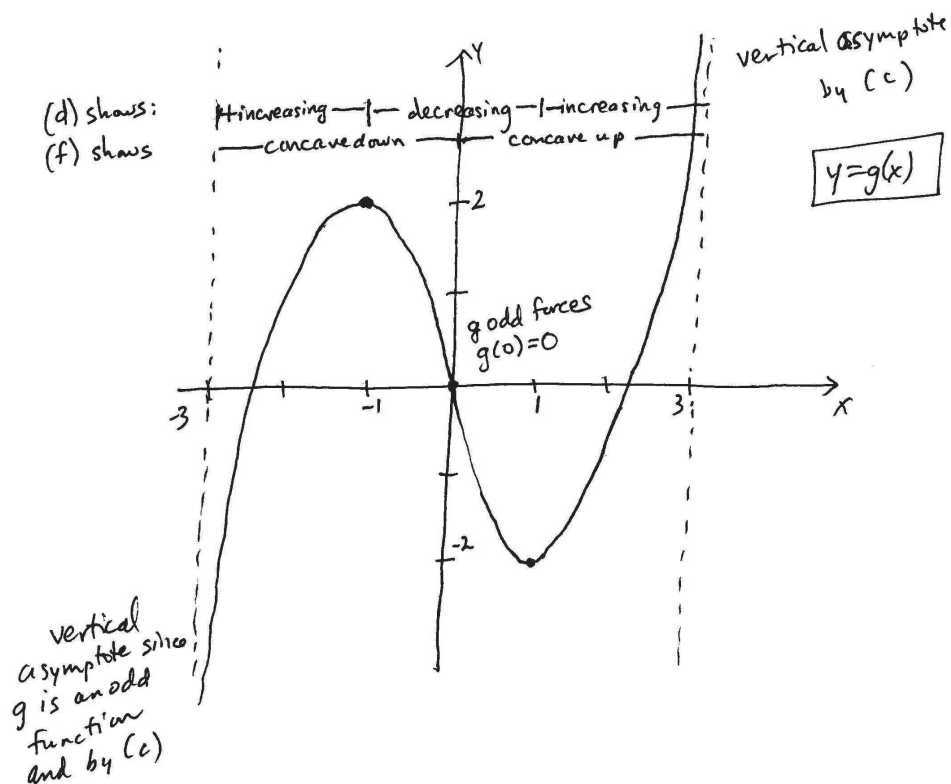 Y
vertical asymptote
by (c)
(d) shows: increasing decreasing increasing
(f) shows concave down concave up
y=g(x)
2
g odd forces
g(0)=0
-3 -1 1 3 X
-2
vertical
asymptote since
g is an odd
function
and by (c)